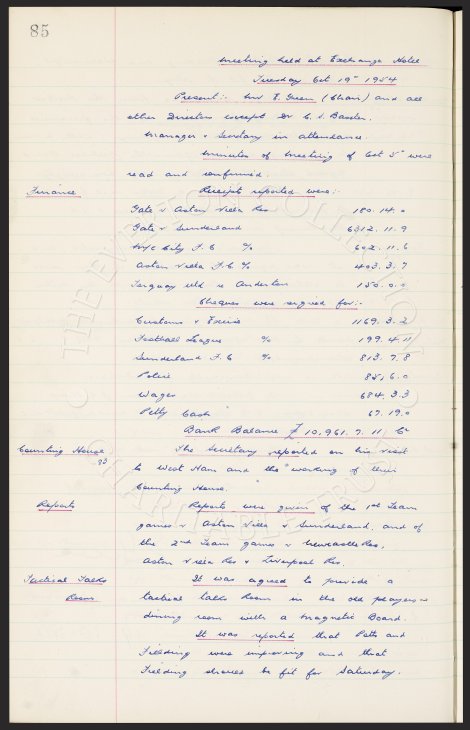 85
Meeting held at Exchange Hotel
Tuesday Oct 19th 1954
Present:- Mr E. Green (Chair) and all
other Directors except Dr C. S. Baxter.
Manager & Secretary in attendance.
Minutes of Meeting of Oct 5th were
read and confirmed.
Finance Receipts reported were:-
Gate v Aston Villa Res 180. 14. 0
Gate v Sunderland 6312. 11. 9
M/c City F.C % 602. 11. 6
Aston Villa F.C % 403. 3. 7
Torquay Utd re Anderton 150. 0. 0
Cheques were signed for:-
Customs & Excise 1169. 3. 2
Football League % 199. 4. 11
Sunderland F.C % 813. 7. 8
Police 85, 6. 0
Wages 684. 3. 3
Petty Cash 67. 19. 0
Bank Balance £ 10,961. 7. 11 Cr
Counting House The Secretary reported on his visit
83 to West Ham and the working of their
Counting House.
Reports Reports were given of the 1st Team
games v Aston Villa & Sunderland, and of
the 2nd Team games v Newcastle Res,
Aston Villa Res & Liverpool Res.
Tactical Talks It was agreed to provide a
Room tactical talks Room in the old players
dining room with a Magnetic Board.
It was reported that Potts and
Fielding were improving and that
Fielding should be fit for Saturday.
THE EVERTON COLLECTION
CHARITABLE TRUST